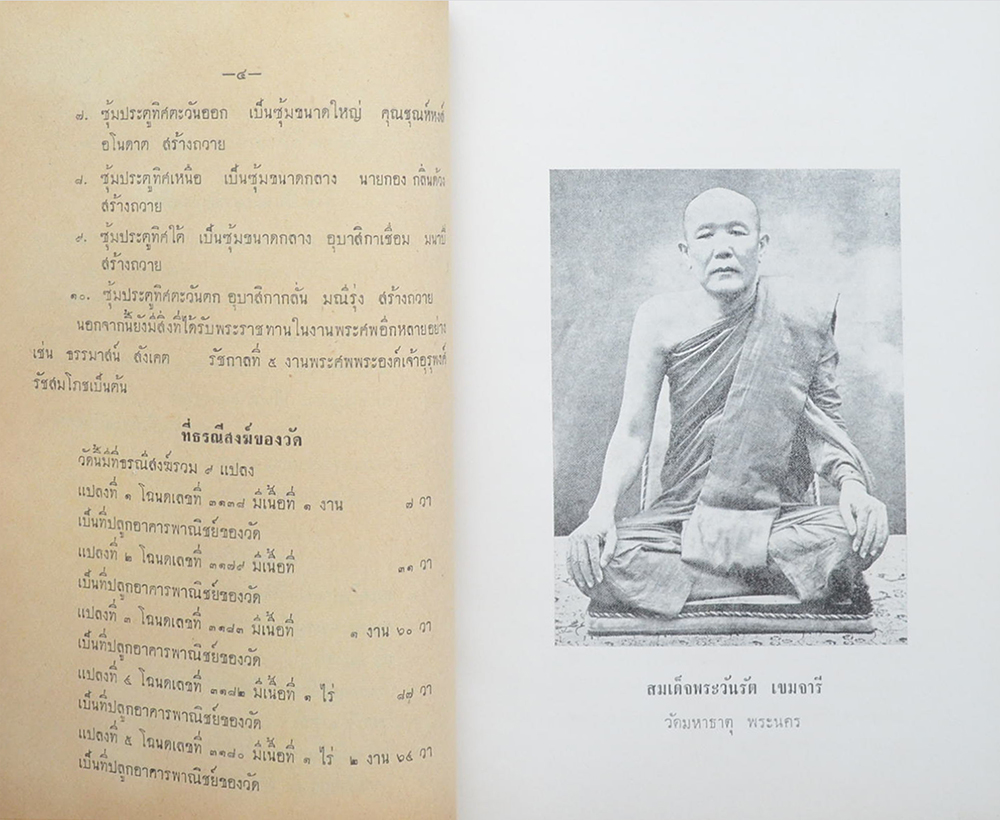 —๔—
๗. ซุ้มประตูทิศตะวันออก เป็นซุ้มขนาดใหญ่ คุณชุณห์หงส์
อโนดาต สร้างถวาย
๘. ซุ้มประตูทิศเหนือ เป็นซุ้มขนาดกลาง นายกอง กลิ่นด้วง
สร้างถวาย
๙. ซุ้มประตูทิศใต้ เป็นซุ้มขนาดกลาง อุบาสิกาเชื่อม
สร้างถวาย
๑๐. ซุ้มประตูทิศตะวันตก อุบาสิกากลั่น มณีรุ่ง สร้างถวาย
นอกจากนี้ยังมีสิ่งที่ได้รับพระราชทานในงานพระศพอีกหลายอย่าง
เช่น ธรรมาสน์ สังเคต รัชกาลที่ ๕ งานพระศพพระองค์เจ้าอุรุพงศ์
รัชสมโภชเป็นต้น
ที่ธรณีสงฆ์ของวัด
วัดนี้มีที่ธรณีสงฆ์รวม ๙ แปลง
แปลงที่ ๑ โฉนดเลขที่ ๓๑๓๘ มีเนื้อที่ ๑ งาน ๗ วา
เป็นที่ปลูกอาคารพาณิชย์ของวัด
แปลงที่ ๒ โฉนดเลขที่ ๓๑๗๙ มีเนื้อที่ ๓๑ วา
เป็นที่ปลูกอาคารพาณิชย์ของวัด
แปลงที่ ๓ โฉนดเลขที่ ๓๑๘๓ มีเนื้อที่ ๑ งาน ๖๐ วา
เป็นที่ปลูกอาคารพาณิชย์ของวัด
แปลงที่ ๔ โฉนดเลขที่ ๓๑๘๒ มีเนื้อที่ ๑ ไร่ ๘๗ วา
เป็นที่ปลูกอาคารพาณิชย์ของวัด
แปลงที่ ๕ โฉนดเลขที่ ๓๑๘๐ มีเนื้อที่ ๑ ไร่ ๒ งาน ๖๔ วา
เป็นที่ปลูกอาคารพาณิชย์ของวัด
สมเด็จพระวันรัต เขมจารี
วัดมหาธาตุ พระนคร